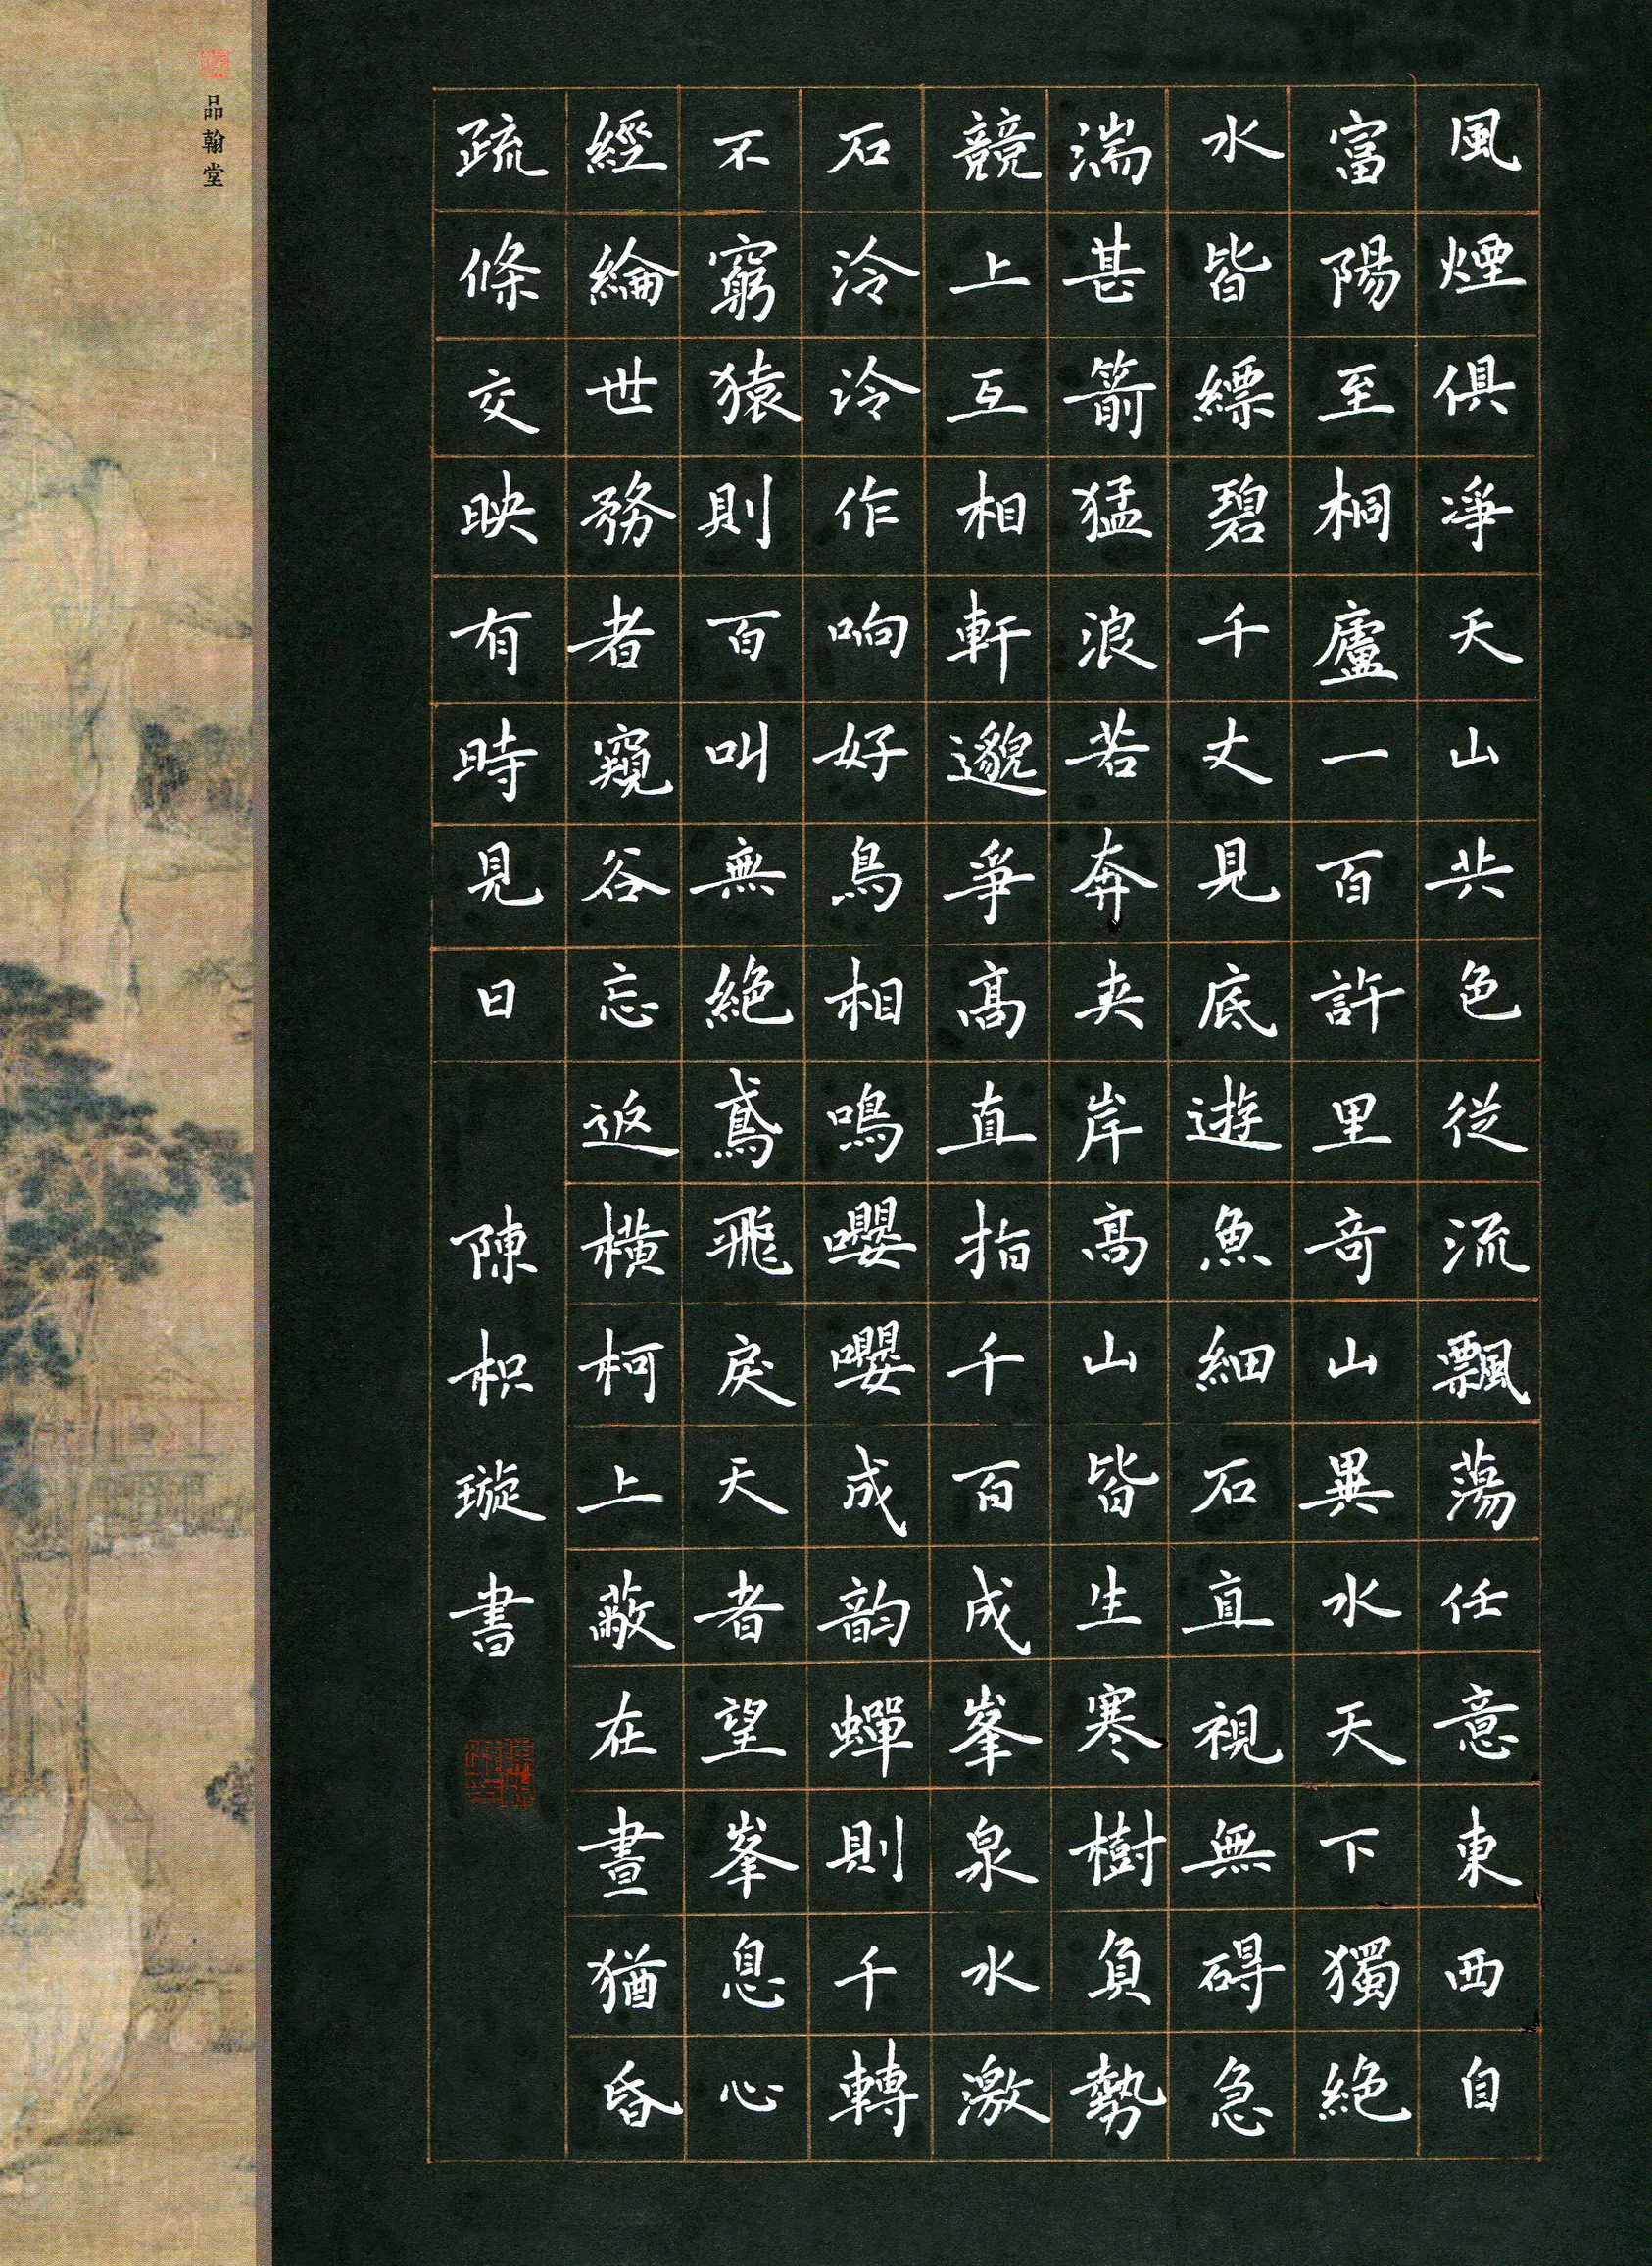 風煙俱凈天山共色從流飄蕩任意東西自
富陽至桐廬一百許里奇山異水天下獨絕
水皆縹碧千丈見底遊魚細石直視無碍急
湍甚箭猛浪若奔夹岸高山皆生寒樹負勢
競上互相軒邈爭高直指千百成峯泉水激
石泠泠作响好鳥相鳴嚶嚶成韵蟬則千轉
不窮猿則百叫無絕鳶飛戾天者望峯息心
經綸世務者窺谷忘返橫柯上蔽在晝猶昏
疏條交映有時見日
陳枳璇書
品翰堂